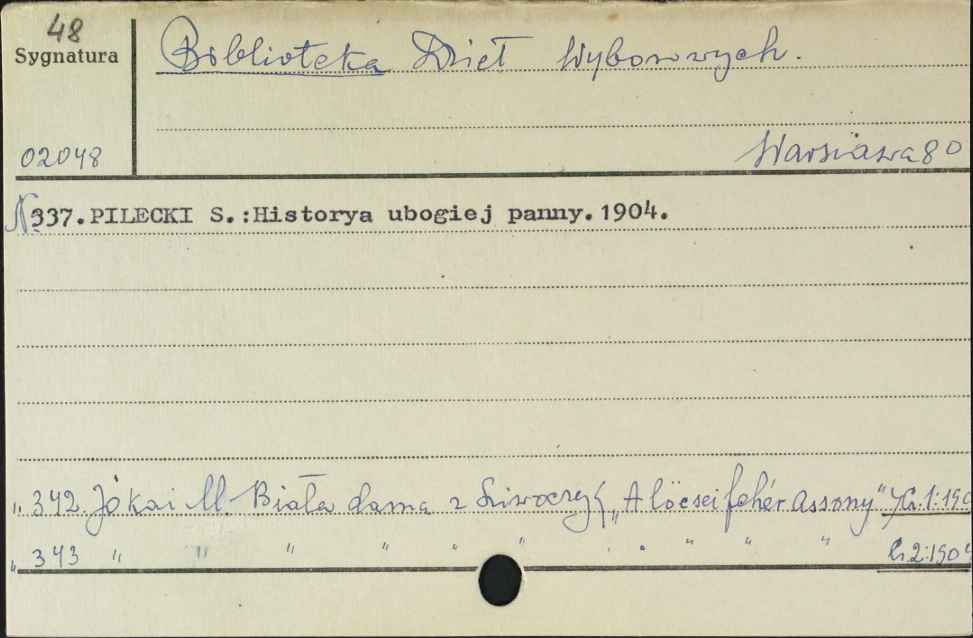 48
Sygnatura
Biblioteka Dzieł Wyborowych.
02048
Warszawa 80
N 337. PILECKI S.:Historya ubogiej panny. 1904.
" 342. Jókai M. Biała dama z ("A löcsei fehér Assony") Cz. 1: 190
" 343 " " " " " " " " " " Cz 2: 190